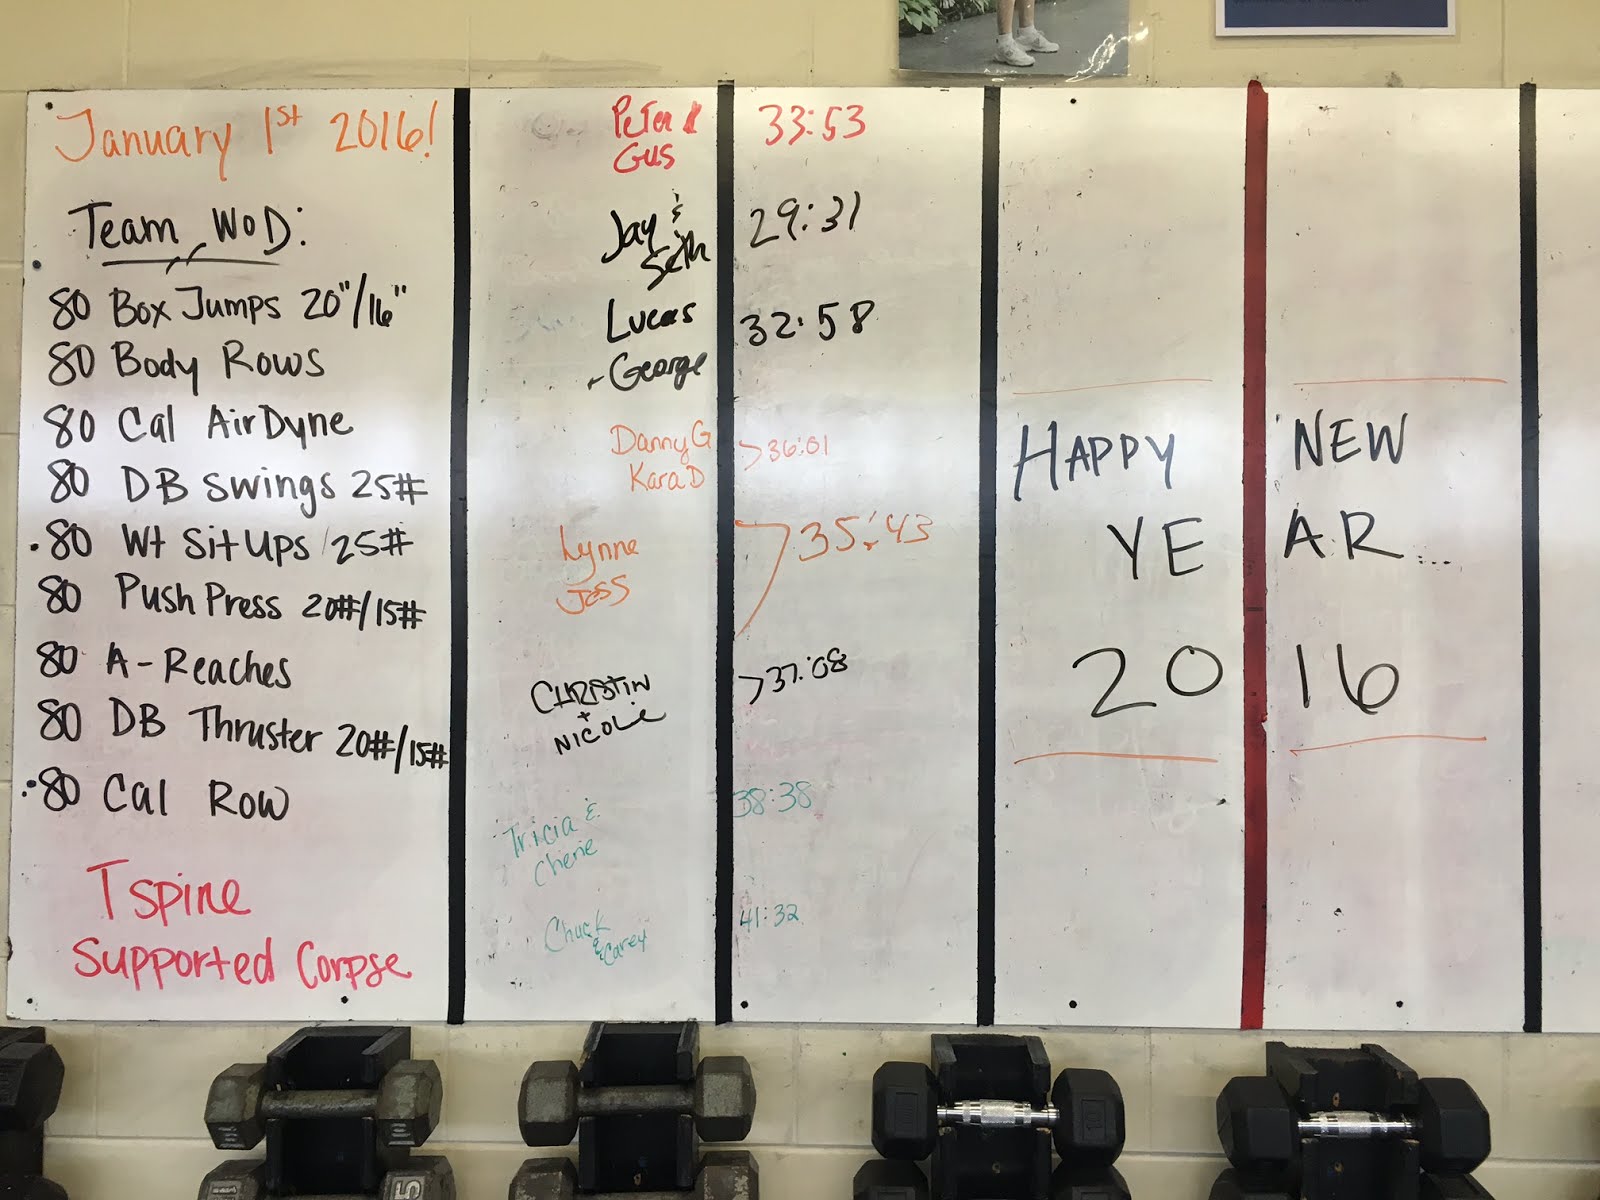 January 1st 2016!
Team WOD:
80 Box Jumps 20"/16"
80 Body Rows
80 Cal AirDyne
80 DB Swings 25#
80 Wt Sit Ups 25#
80 Push Press 20#/15#
80 A-Reaches
80 DB Thruster 20#/15#
80 Cal Row
T spine
Supported Corpse
Peter &
Gus
33:53
Jay &
Seth
29:31
Lucas
+ George
32:58
Danny G
Kara D
36:01
Lynne
Jess
35:43
CHRISTIN
+
NICOLE
37:08
Tricia &
Cherie
38:38
Chuck
& Carey
41:32
HAPPY NEW
YEAR...
2016